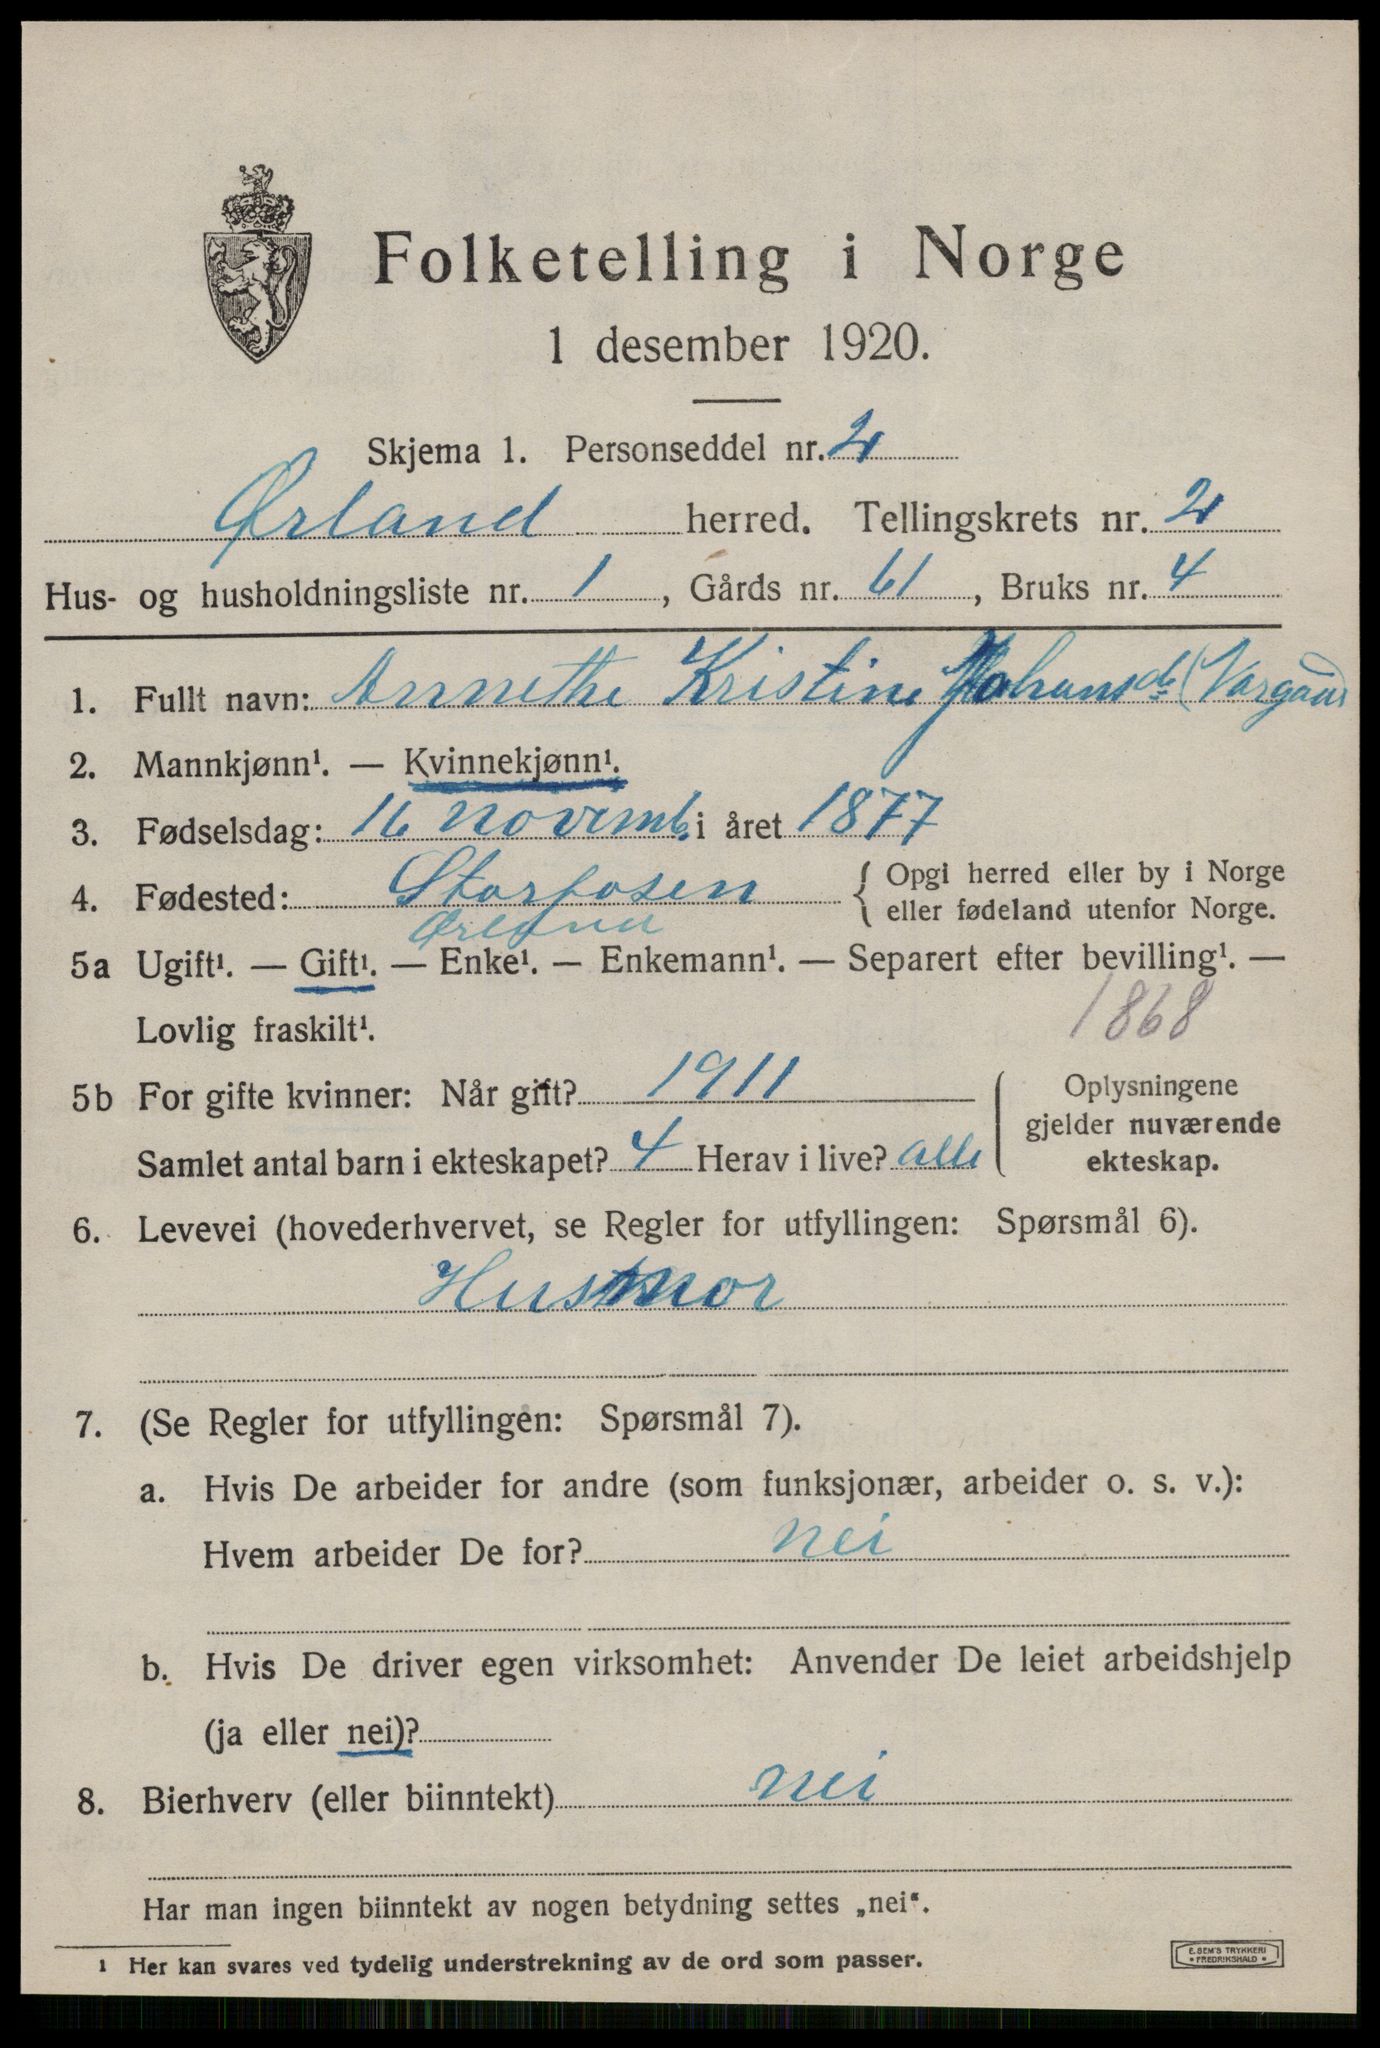 Folketelling i Norge
1 desember 1920.
Skjema 1. Personseddel nr. 2
Ørland herred. Tellingskrets nr. 2
Hus- og husholdningsliste nr. 1, Gårds nr. 61, Bruks nr. 4
1. Fullt navn: Annethe Kristine Johansdt (Vargaas
2. Mannkjønn¹. — Kvinnekjønn¹.
3. Fødselsdag: 16 novemb. i året 1877
4. Fødested: Storfosen { Opgi herred eller by i Norge
Ørland eller fødeland utenfor Norge.
5a Ugift¹. — Gift¹. — Enke¹. — Enkemann¹. — Separert efter bevilling¹. —
Lovlig fraskilt¹. 1868
5b For gifte kvinner: Når gift? 1911 Oplysningene
gjelder nuværende
Samlet antal barn i ekteskapet? 4 Herav i live? alle ekteskap.
6. Levevei (hovederhvervet, se Regler for utfyllingen: Spørsmål 6).
Husmor
7. (Se Regler for utfyllingen: Spørsmål 7).
a. Hvis De arbeider for andre (som funksjonær, arbeider o. s. v.):
Hvem arbeider De for? nei
b. Hvis De driver egen virksomhet: Anvender De leiet arbeidshjelp
(ja eller nei)?
8. Bierhverv (eller biinntekt) nei
Har man ingen biinntekt av nogen betydning settes „nei“.
¹ Her kan svares ved tydelig understrekning av de ord som passer.
E. SEM'S TRYKKERI
• FREDRIKSHALD •